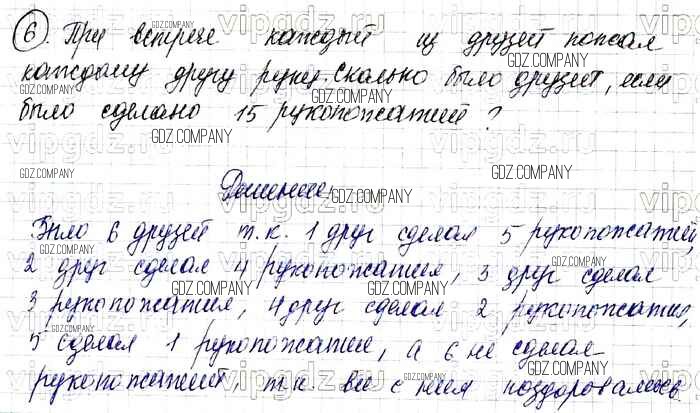 6. При встрече каждый из друзей пожал
каждому другу руку. Сколько было друзей, если
было сделано 15 рукопожатий?
Решение:
Было 6 друзей т.к. 1 друг сделал 5 рукопожатий,
2 друг сделал 4 рукопожатия, 3 друг сделал
3 рукопожатия, 4 друг сделал 2 рукопожатия,
5 сделал 1 рукопожатие, а 6 не сделал
рукопожатий, т.к. все с ним поздоровались.
GDZ.COMPANY
vipgdz.ru